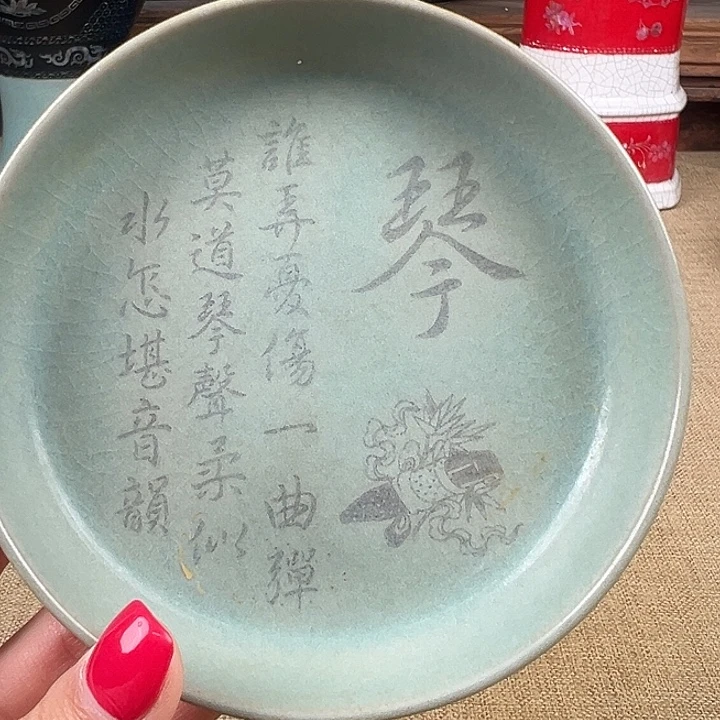 琴
誰弄憂傷一曲彈
莫道琴聲柔似
水怎堪音韻